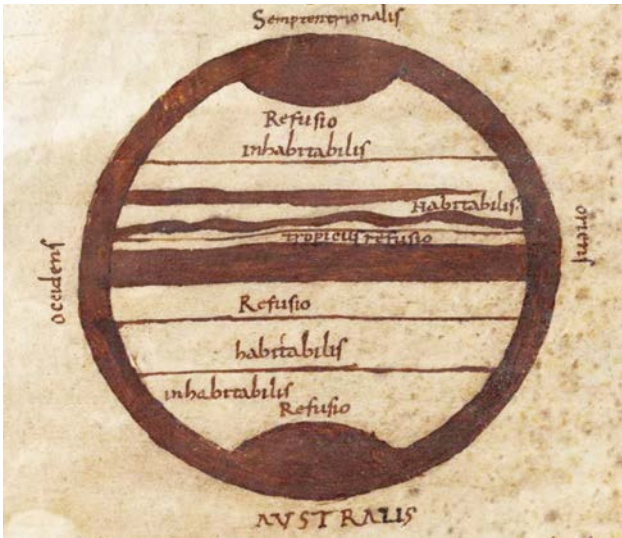 Semptentrionalis
Refusio
inhabitabilis
Habitabilis.
tropicus refusio
occidens
oriens
Refusio
habitabilis
inhabitabilis
Refusio
AUSTRALIS